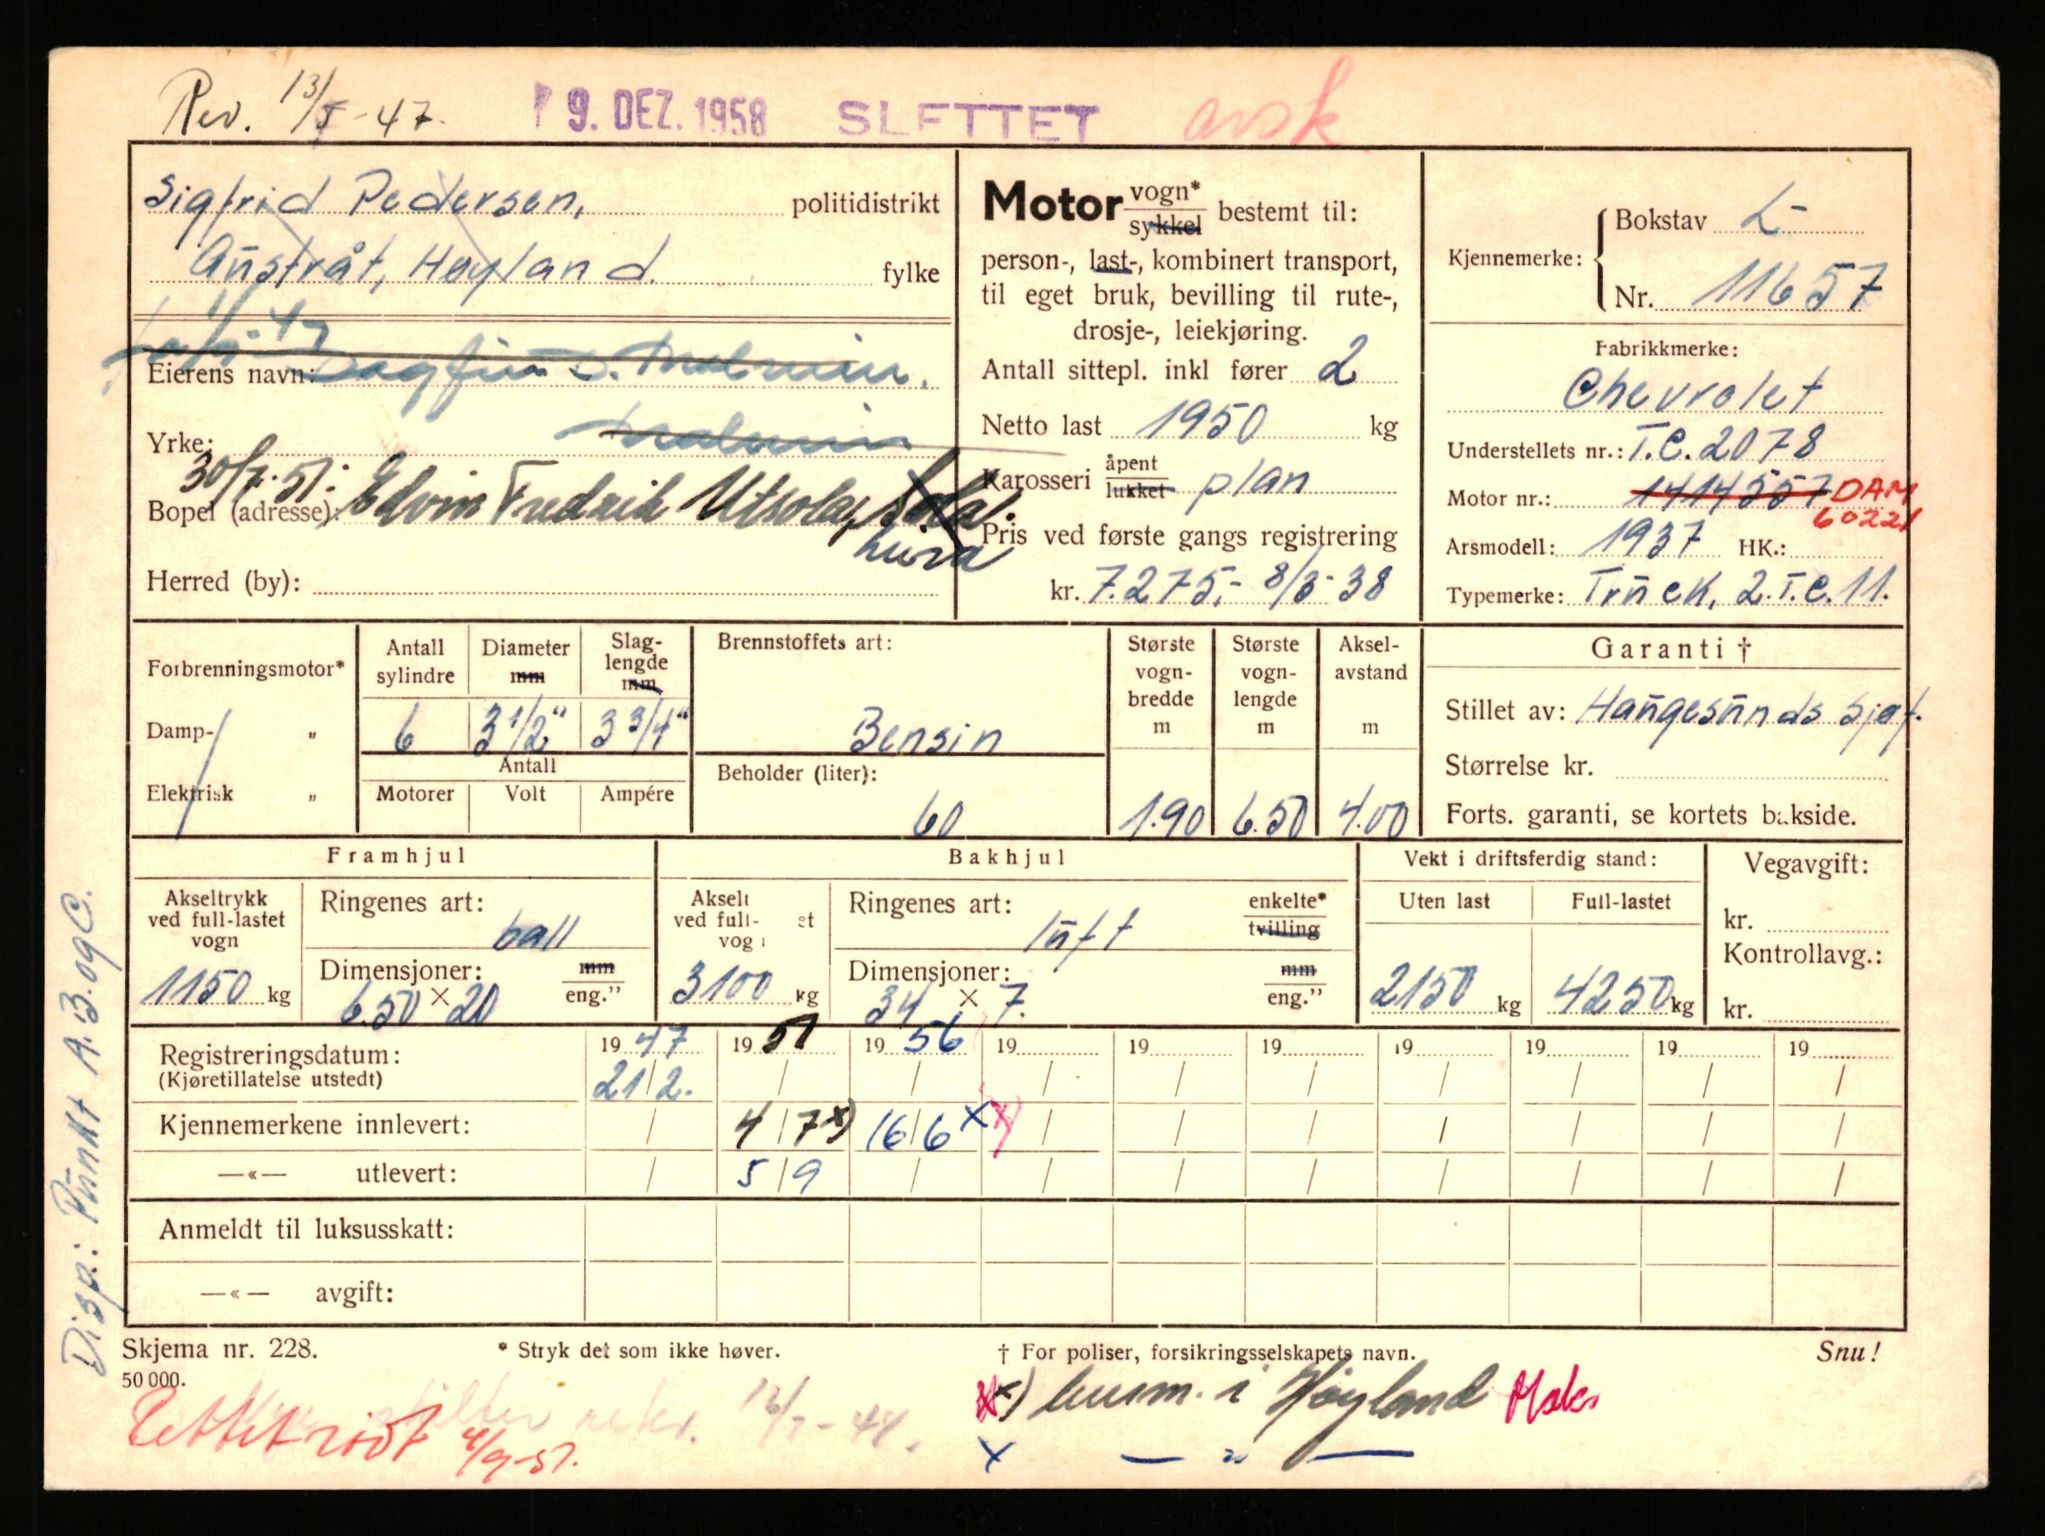 Rev. 13/5-47.
9. DEZ. 1958 SLETTET avsk
Sigfrid Pedersen, politidistrikt
Austråt, Høyland. fylke
Eierens navn: Dagfin S. Malmin.
Yrke: Malmin
30/7-51: Edvin Fredrik Utsola, Sola.
Bopel (adresse):
Lura
Herred (by):
Motor vogn* sykkel bestemt til:
person-, last-, kombinert transport,
til eget bruk, bevilling til rute-,
drosje-, leiekjøring.
Antall sittepl. inkl fører 2
Netto last 1950 kg
Karosseri åpent lukket plan
Pris ved første gangs registrering
kr. 7.275,- 8/3-38
Kjennemerke:
Bokstav L-
Nr. 11657
Fabrikkmerke:
Chevrolet
Understellets nr.: T.C. 2078
Motor nr.: 1414557 DAM
60221
Arsmodell: 1937 HK.:
Typemerke: Truck, 2.T.C.11.
Forbrenningsmotor*
Damp- „
Elektrisk „
Antall sylindre
Diameter mm
Slaglengde mm
6 3 1/2" 3 3/4"
Antall
Motorer Volt Ampére
Brennstoffets art:
Bensin
Beholder (liter):
60
Største vogn-bredde m
1.90
Største vogn-lengde m
6.50
Aksel-avstand m
4.00
Garanti †
Stillet av: Haugesunds Sjøf.
Størrelse kr.
Forts. garanti, se kortets bakside.
Framhjul
Akseltrykk ved full-lastet vogn
1150 kg
Ringenes art:
ball
Dimensjoner: mm eng."
6.50 × 20
Bakhjul
Akselt ved full- et vog
3100 kg
Ringenes art: enkelte* tvilling
luft
Dimensjoner: mm eng."
34 × 7.
Vekt i driftsferdig stand:
Uten last Full-lastet
2150 kg 4250 kg
Vegavgift:
kr.
Kontrollavg.:
kr.
Registreringsdatum: 1947 1951 1956 19 19 19 19 19 19 19
(Kjøretillatelse utstedt) 21/2. / / / / / / / / /
Kjennemerkene innlevert: / 4/7 x) 16/6 x x) / / / / / / /
—«— utlevert: / 5/9 / / / / / / / /
Anmeldt til luksusskatt:
—«— avgift:
Disp.: Punkt A. B. og C.
Skjema nr. 228. * Stryk det som ikke høver. † For poliser, forsikringsselskapets navn. Snu!
50 000.
x) lensm. i Høyland
x — " —
4/9-51.